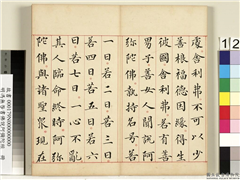 處舍利弗不可以少
善根福德因緣得生
彼國舍利弗若有善
男子善女人聞說阿
彌陀佛執持名號若
一日若二日若三日
若四日若五日若六
日若七日一心不亂
其人臨命終時阿彌
陀佛與諸聖眾現在